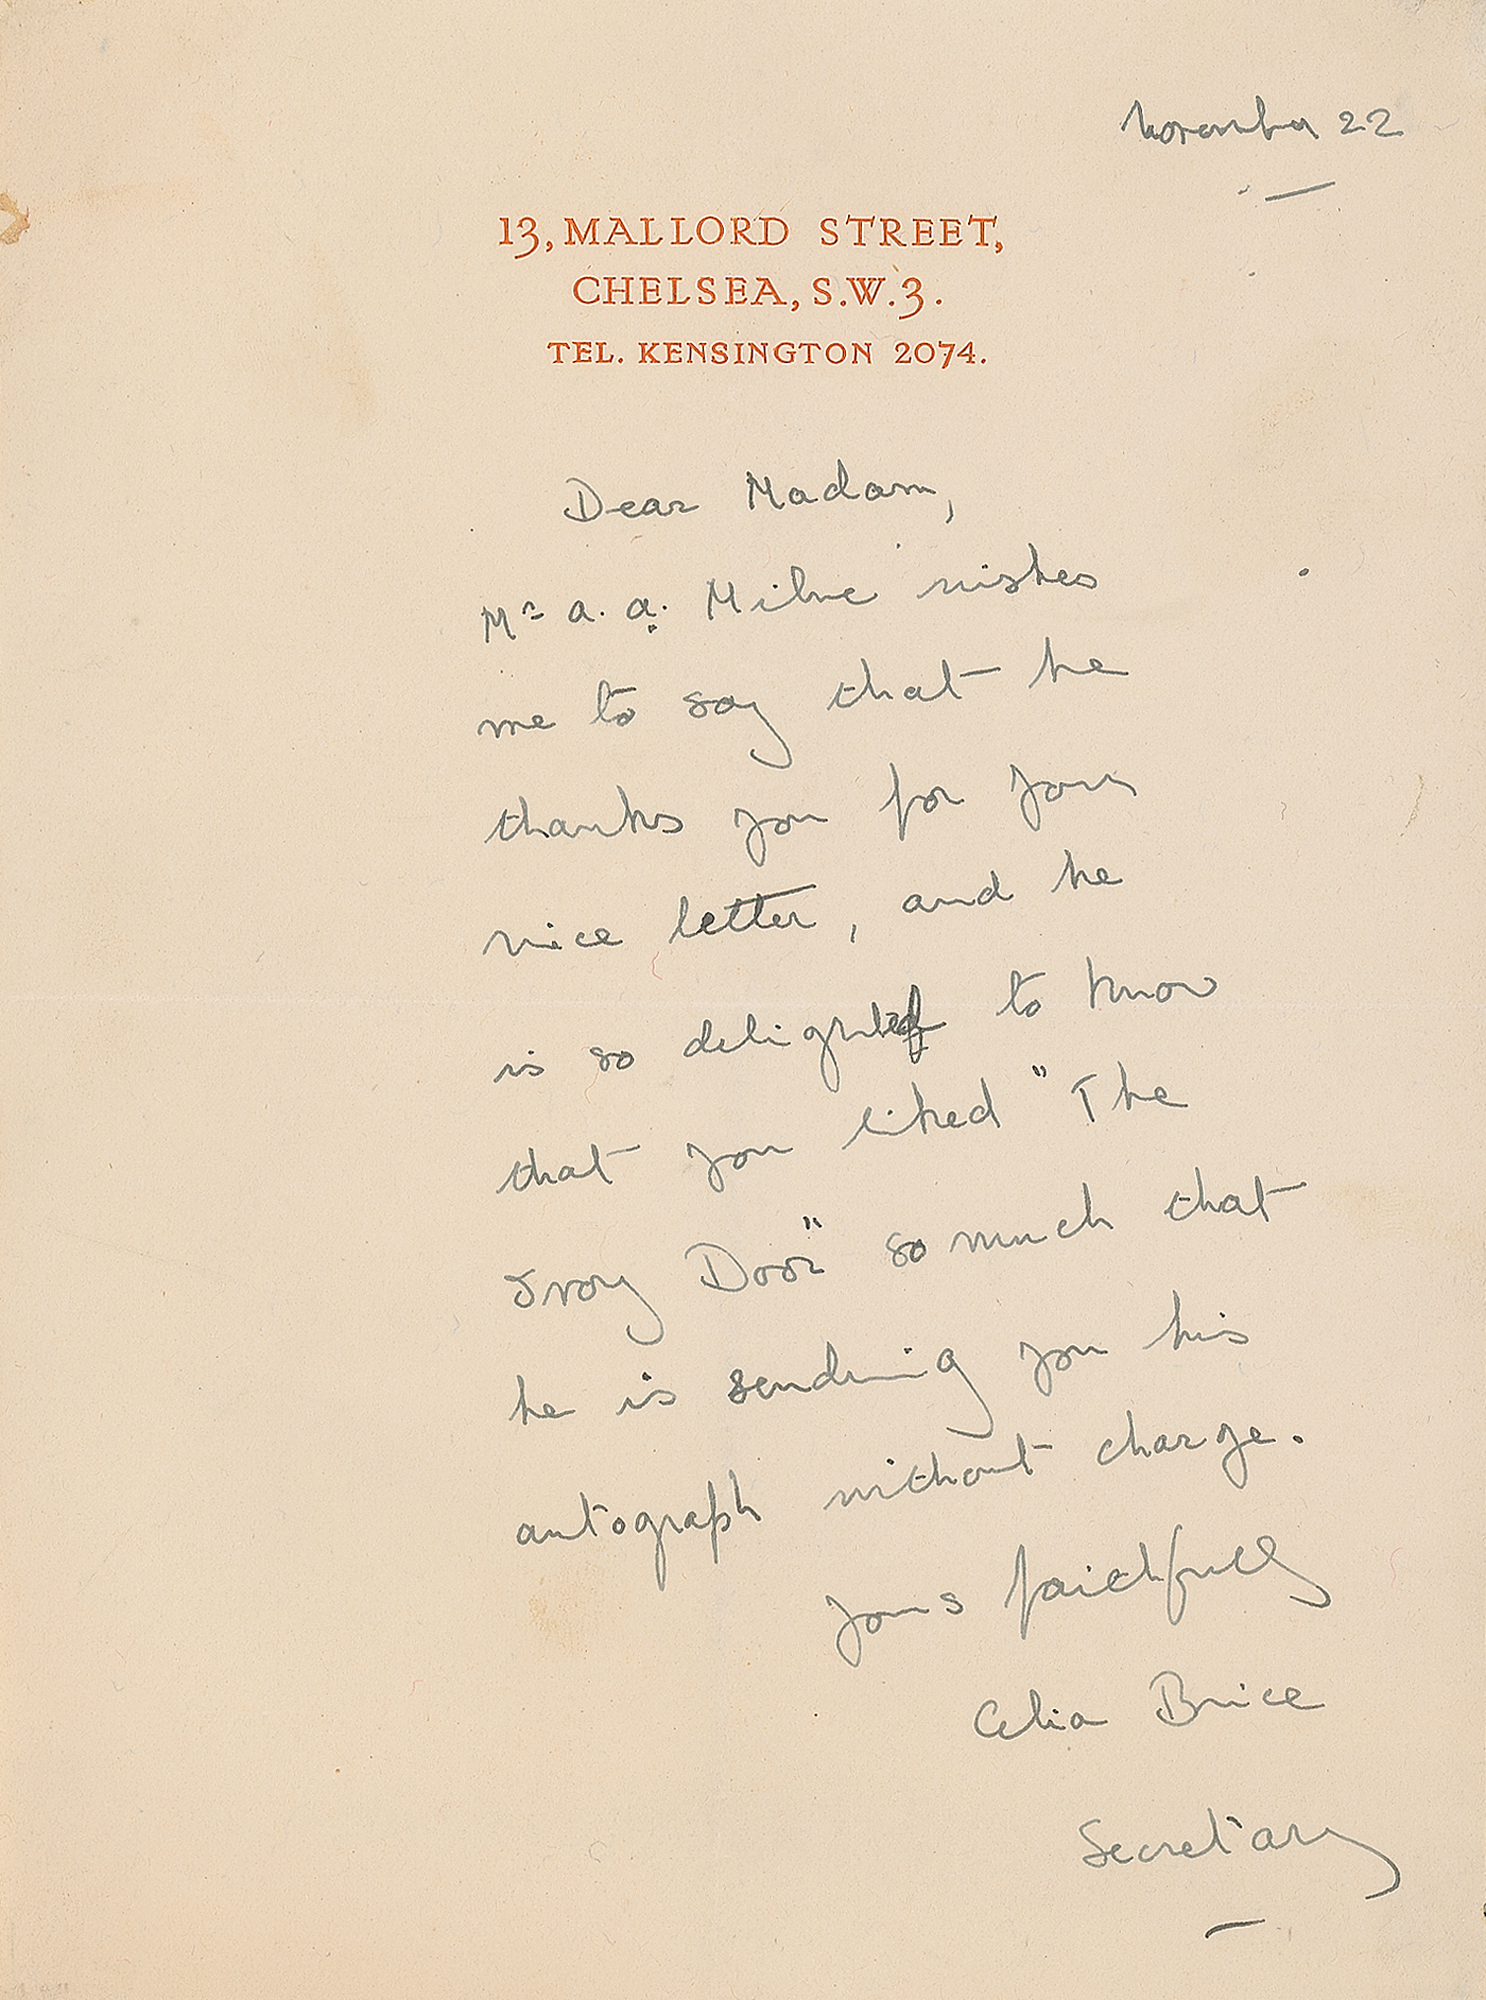 November 22
13, MALLORD STREET,
CHELSEA, S.W.3.
TEL. KENSINGTON 2074.
Dear Madam,
Mr A. A. Milne wishes
me to say that he
thanks you for your
nice letter, and he
is so delighted to know
that you liked "The
Ivory Door" so much that
he is sending you his
autograph without charge.
Yours faithfully
Celia Brice
Secretary